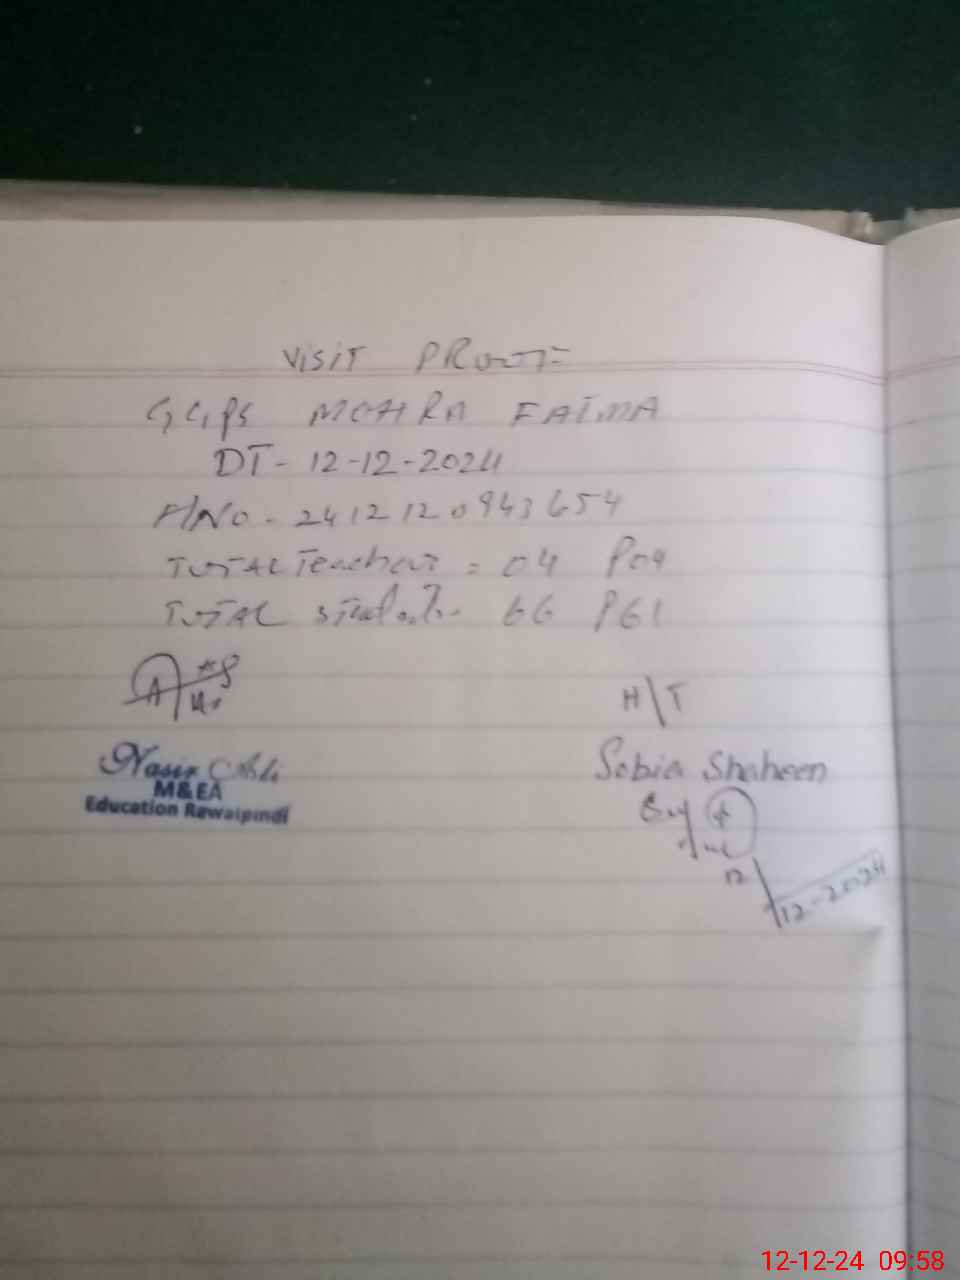 VISIT PROOF
GGPS MOHRA FATMA
DT- 12-12-2024
A/No - 2412120943654
TOTAL Teachers = 04 P04
TOTAL Students - 66 P61
H/T
Nasir Ali
M&EA
Education Rawalpindi
Sobia Shaheen
12/12-2024
12-12-24 09:58